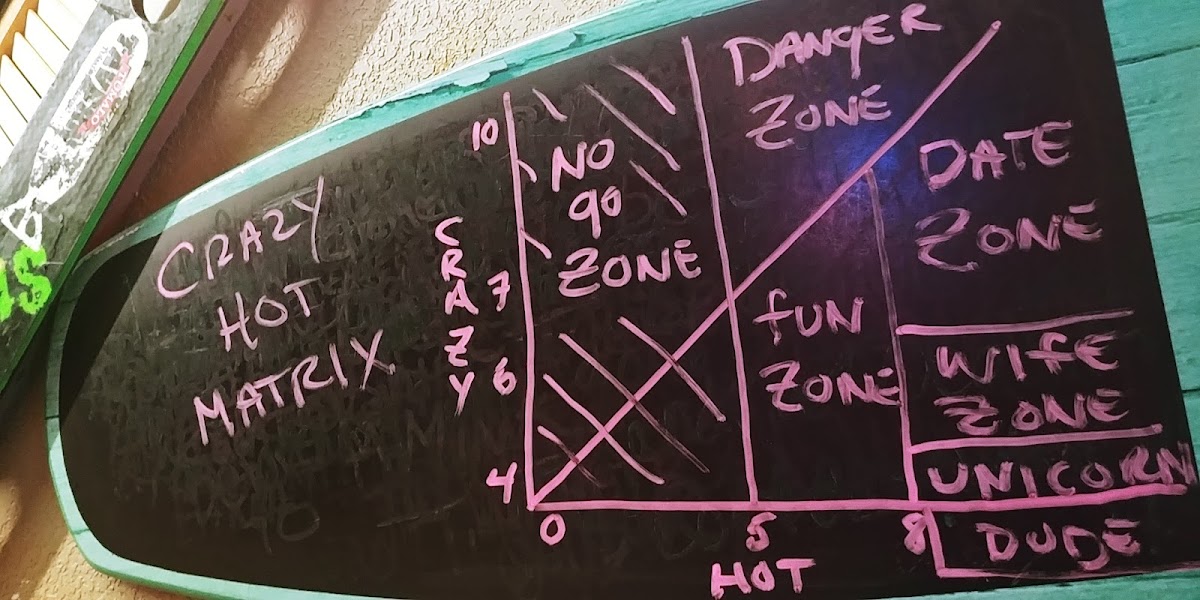 CRAZY
HOT
MATRIX
CRAZY
10
7
6
4
NO
go
ZONE
DANGER
ZONE
DATE
ZONE
fUN
ZONE
WIfE
ZONE
UNICORN
DUDE
0
5
8
HOT